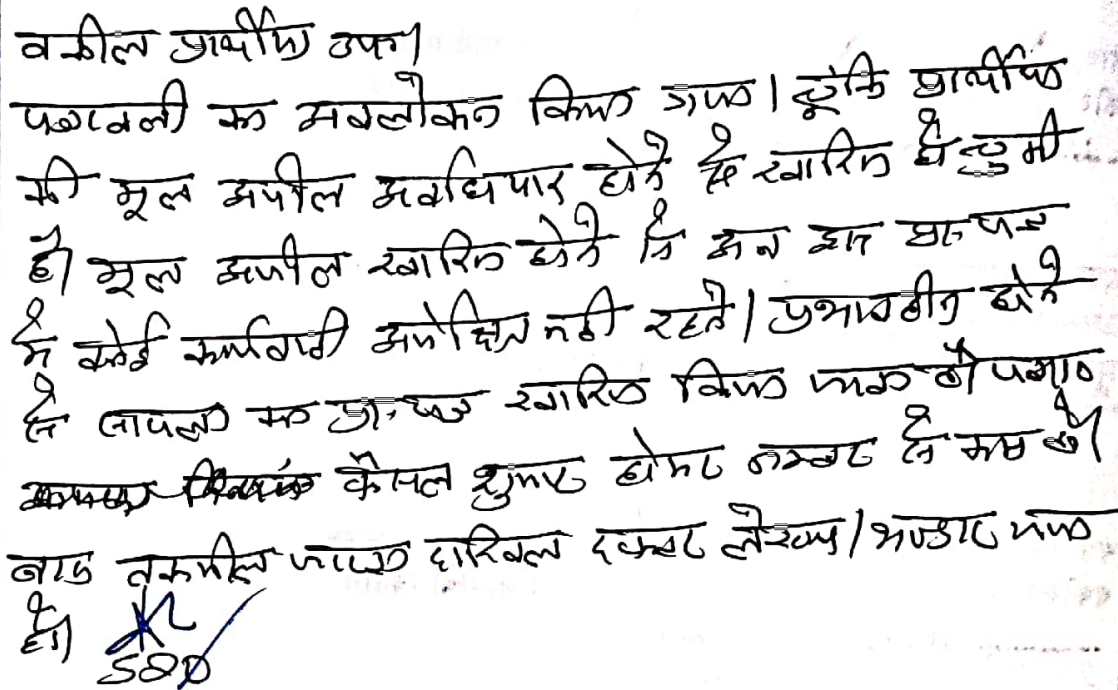 वकील प्रार्थीया उप।
पत्रावली का अवलोकन किया गया। चूंकि प्रार्थीया
की मूल अपील अवधिपार होने से खारिज हो चुकी
है। मूल अपील खारिज होने से अब इस प्रा. पत्र
में कोई कार्यवाही अपेक्षित नहीं रहती। प्रभावहीन होने
से का प्रा. पत्र खारिज किया जाता है।
फैसल शुमार होकर नम्बर से कम हो।
बाद तकमील दाखिल दफ्तर
हो।